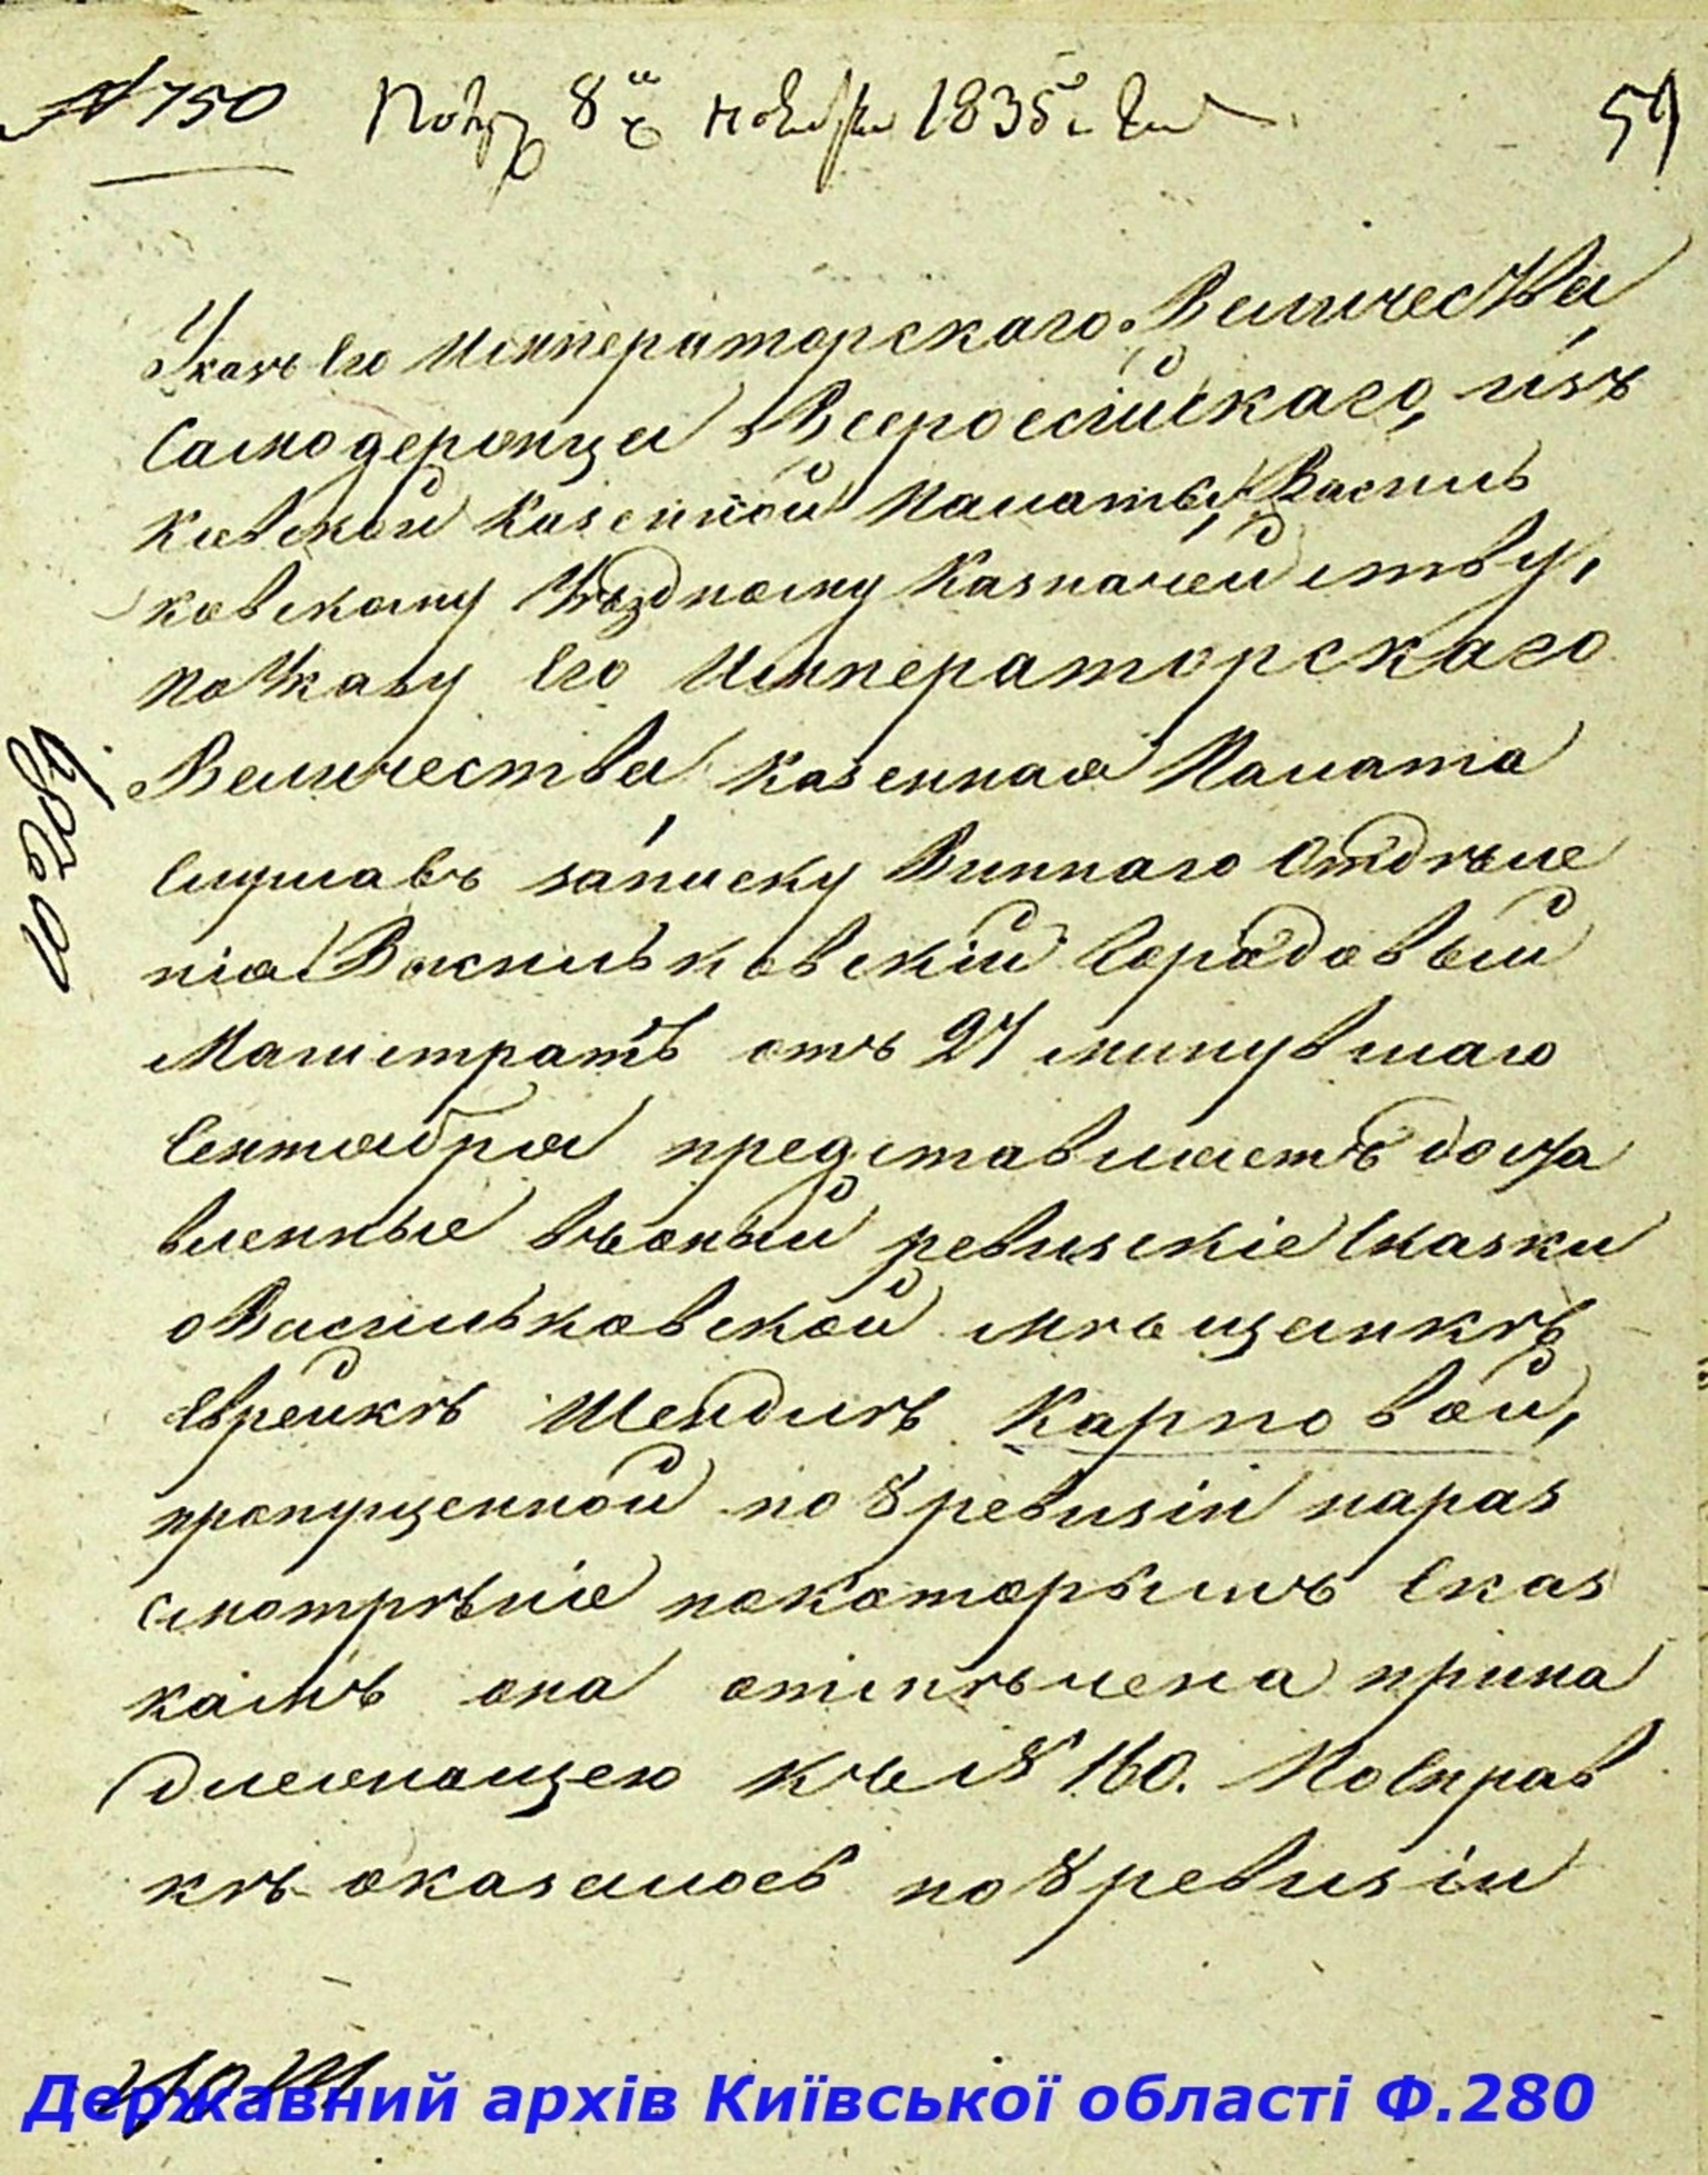 № 750 Получ 8 ноября 1835 59
Указъ Его Императорскаго Величества
Самодержца Всероссійскаго, изъ
Кіевской Казенной Палаты, Василь
ковскому Уѣздному Казначейству,
По Указу Его Императорскаго
Величества Казенная Палата
Слушавъ записку Виннаго Отдѣле
нія Васильковскій Городовый
Магистратъ отъ 27 минувшаго
Сентября представляетъ доста
вленные въ оный ревизскіе Сказки
о Васильковской мѣщанкѣ
Еврейкѣ Шендлѣ Карповой,
пропущенной по 8 ревизіи на раз
смотрѣніе по которымъ Сказ
камъ она отмѣчена прина
длежащею къ № 160. По Справ
кѣ оказалось по 8 ревизіи
10289
Державний архів Київської області Ф.280